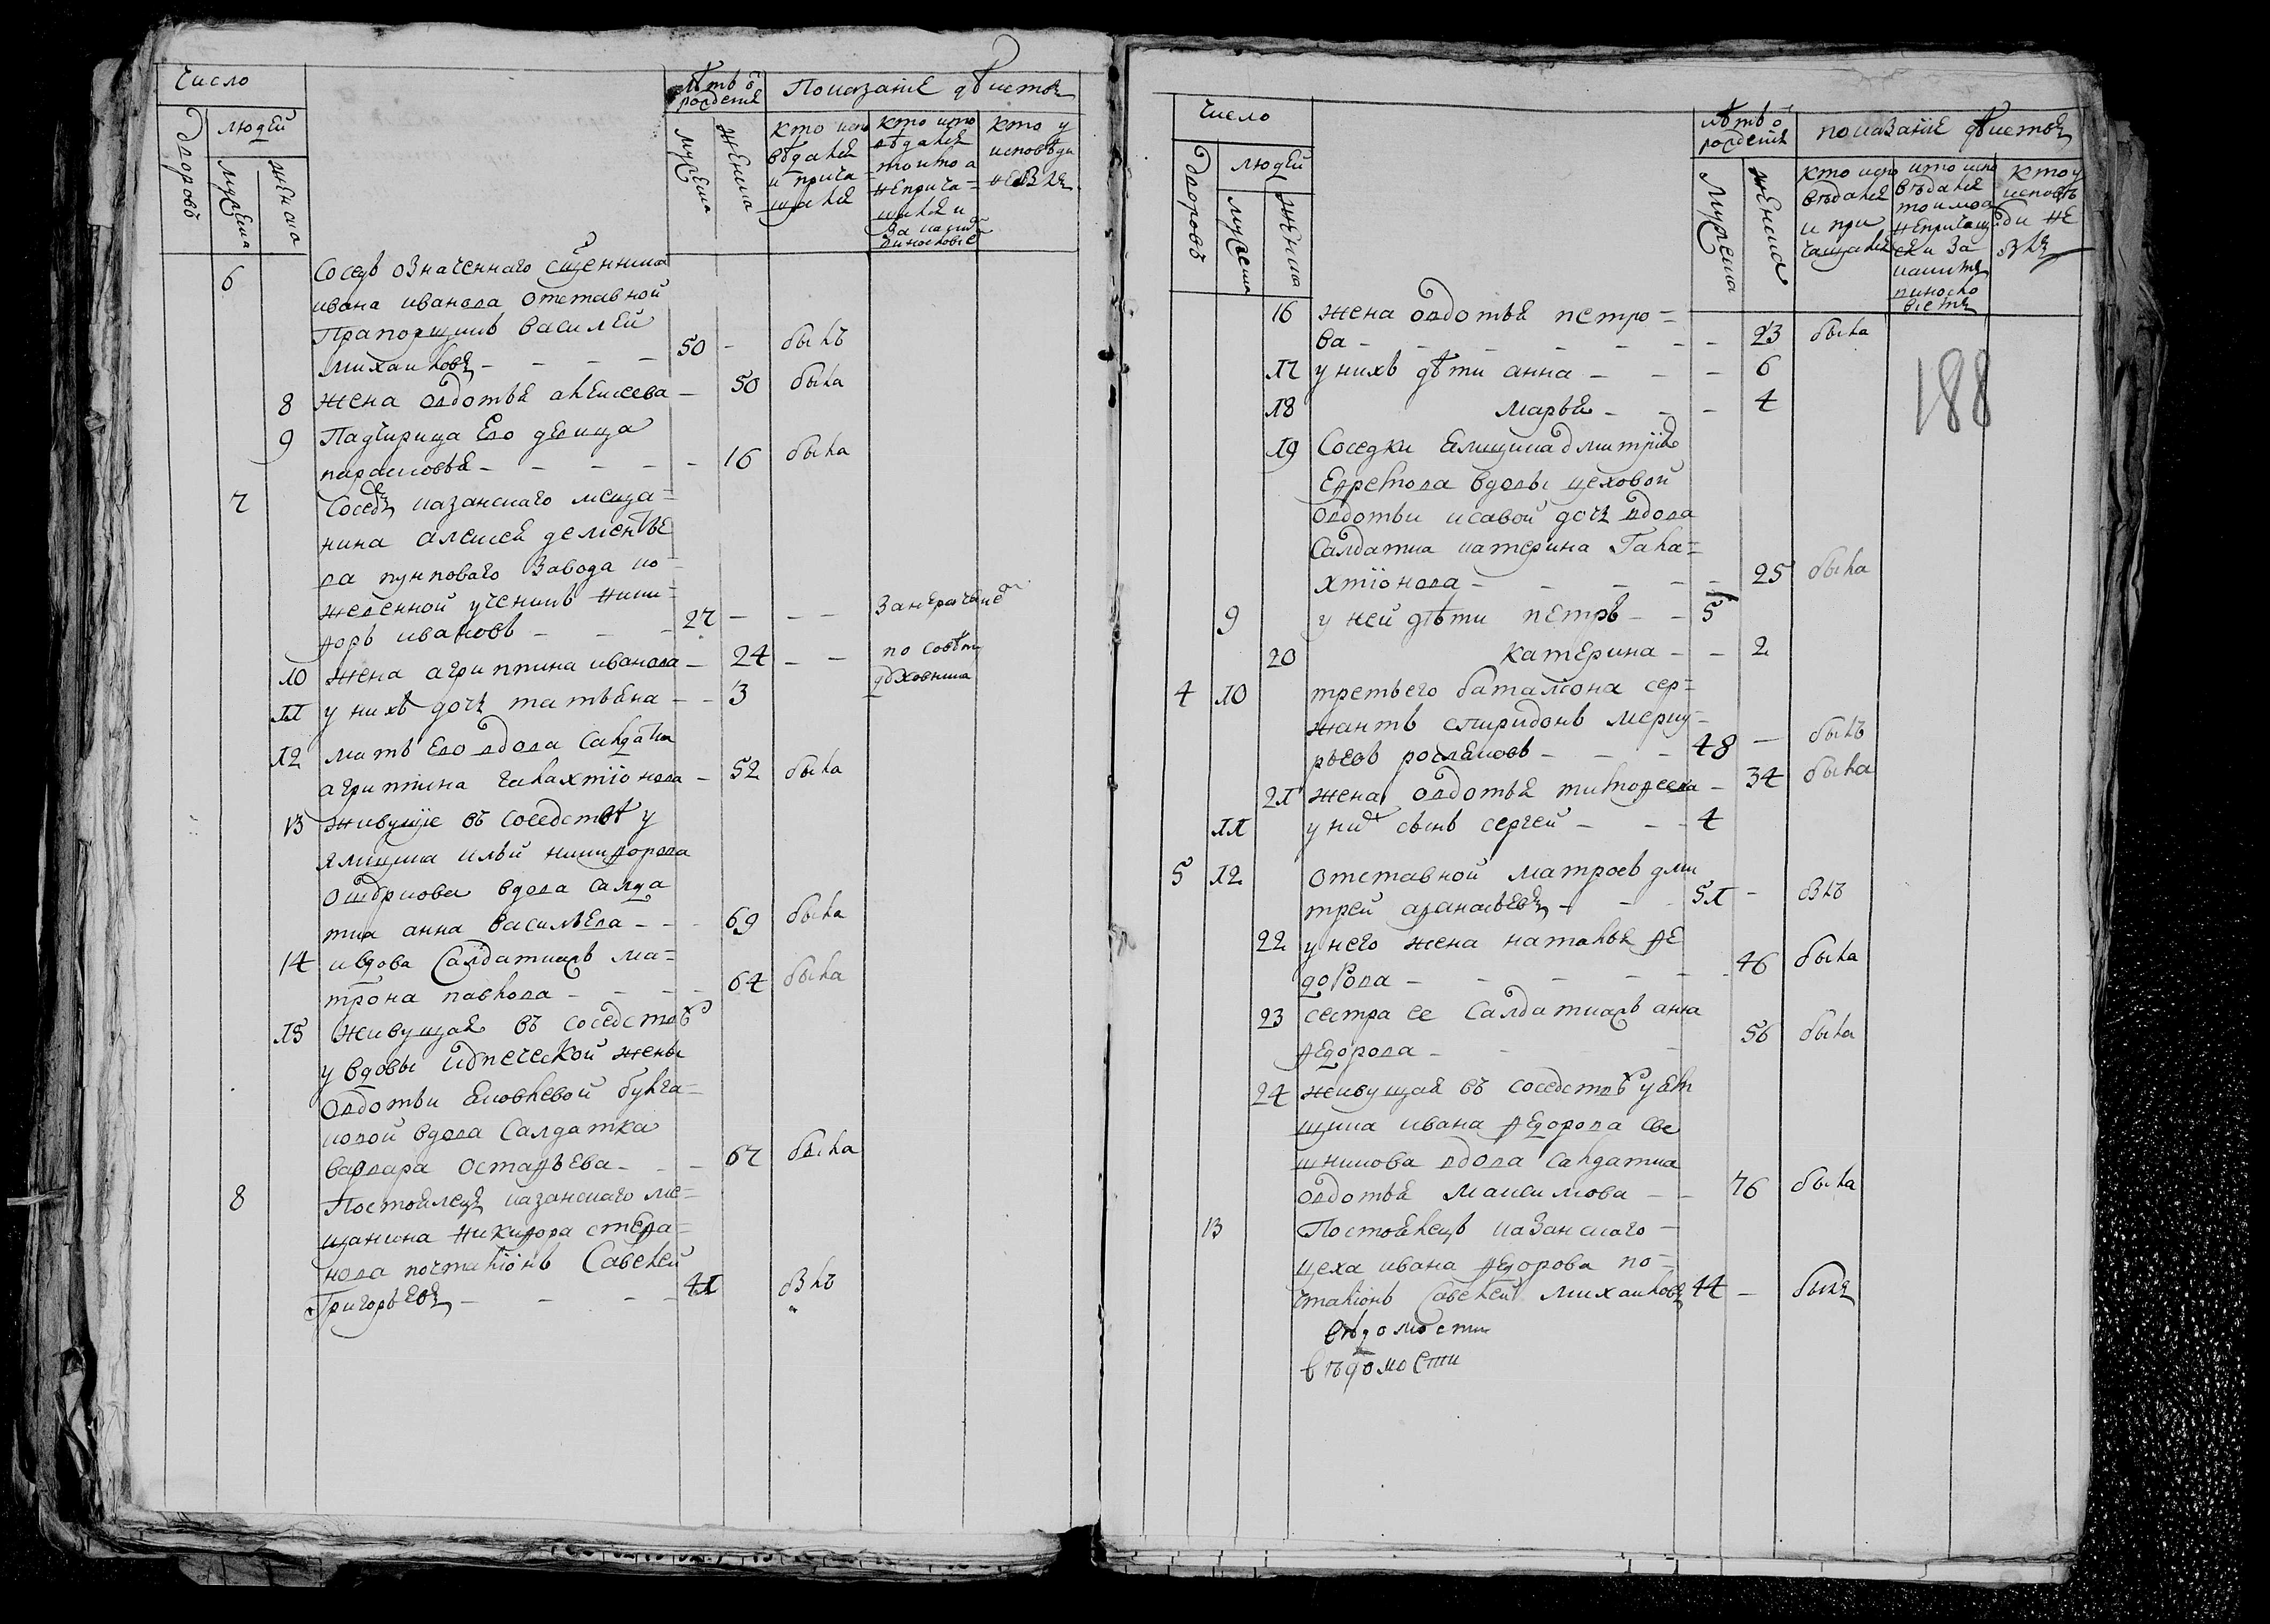 Число
лѣтъ ѿ
рожденія
Показаніе дѣйства
дворовъ
людей
мужеска
женска
мужеска
женска
кто испо
вѣдался
и прича
щался
кто испо
вѣдался
токмо а
неприча=
щался и
за каким
кто у
исповѣди
небылъ
6 Соседъ означеннаго сщенника
ивана иванова отставной
Прапорщикъ василей
михаиловъ - - - 50 - былъ
8 жена овдотья алексеева - 50 была
9 Падчирица ево девица
парасковья - - - - - 16 была
7 Соседъ казанскаго меща=
нина алексея дементье
ва пунповаго завода ко
жевенной ученикъ ники=
форъ ивановъ - - - 27 - - -
10 жена агриппина иванова - 24 - - по совѣту
дховника
11 у нихъ дочь татьяна - - 3
12 мать ево вдова салдатка
агрипина галахтіонова - 52 была
13 живущіе въ соседствѣ у
ямщика ильи никифорова
вдова салда
тка анна васильева - - - 69 была
14 и вдова салдатка жъ ма=
трона павлова - - - - 64 была
15 живущая въ соседствѣ
у вдовы купеческой жены
овдотьи яковлевой булга=
ковой вдова салдатка
варвара остафьева - - - 67 была
8 Постоялецъ казанскаго ме=
щанина никифора стефа=
нова почталіонъ савелей
Григорьевъ - - - 41 былъ
Число
лѣтъ ѿ
рожденія
показаніе дѣйства
188
дворовъ
людей
мужеска
женска
мужеска
женска
кто испо
вѣдался
и при
чащался
кто испо
вѣдался
токмо а
непричащ
ся и за
каким
кто у
исповѣ
ди не
былъ
16 жена овдотья петро=
ва - - - - - - - 23 была
17 у нихъ дѣти анна - - - 6
18 марья - - - 4
19 Соседки ямщика дмитрія
вдовы цеховой
овдотьи исавой дочь вдова
салдатка катерина Гала=
хтіонова - - - - - 25 была
9 у ней дѣти петръ - - 5
20 катерина - - 2
4 10 третьего баталіона сер=
жантъ спиридонъ мерку=
рьевъ - - - 48 - былъ
21 жена овдотья тимофеева - 34 была
11 у них сынъ сергей - - - 4
5 12 отставной матросъ дми
трей афанасьевъ - - - 51 - былъ
22 у него жена наталья фе
дорова - - - - - - 46 была
23 сестра ее салдатка жъ анна
федорова - - - 56 была
24 живущая въ соседствѣ у ям
щика ивана федорова све
шникова вдова салдатка
овдотья максимова - - 76 была
13 Постоялецъ казанскаго -
цеха ивана федорова по=
чталіонъ савелей михаиловъ 44 - былъ
вѣдомости
вѣдомости